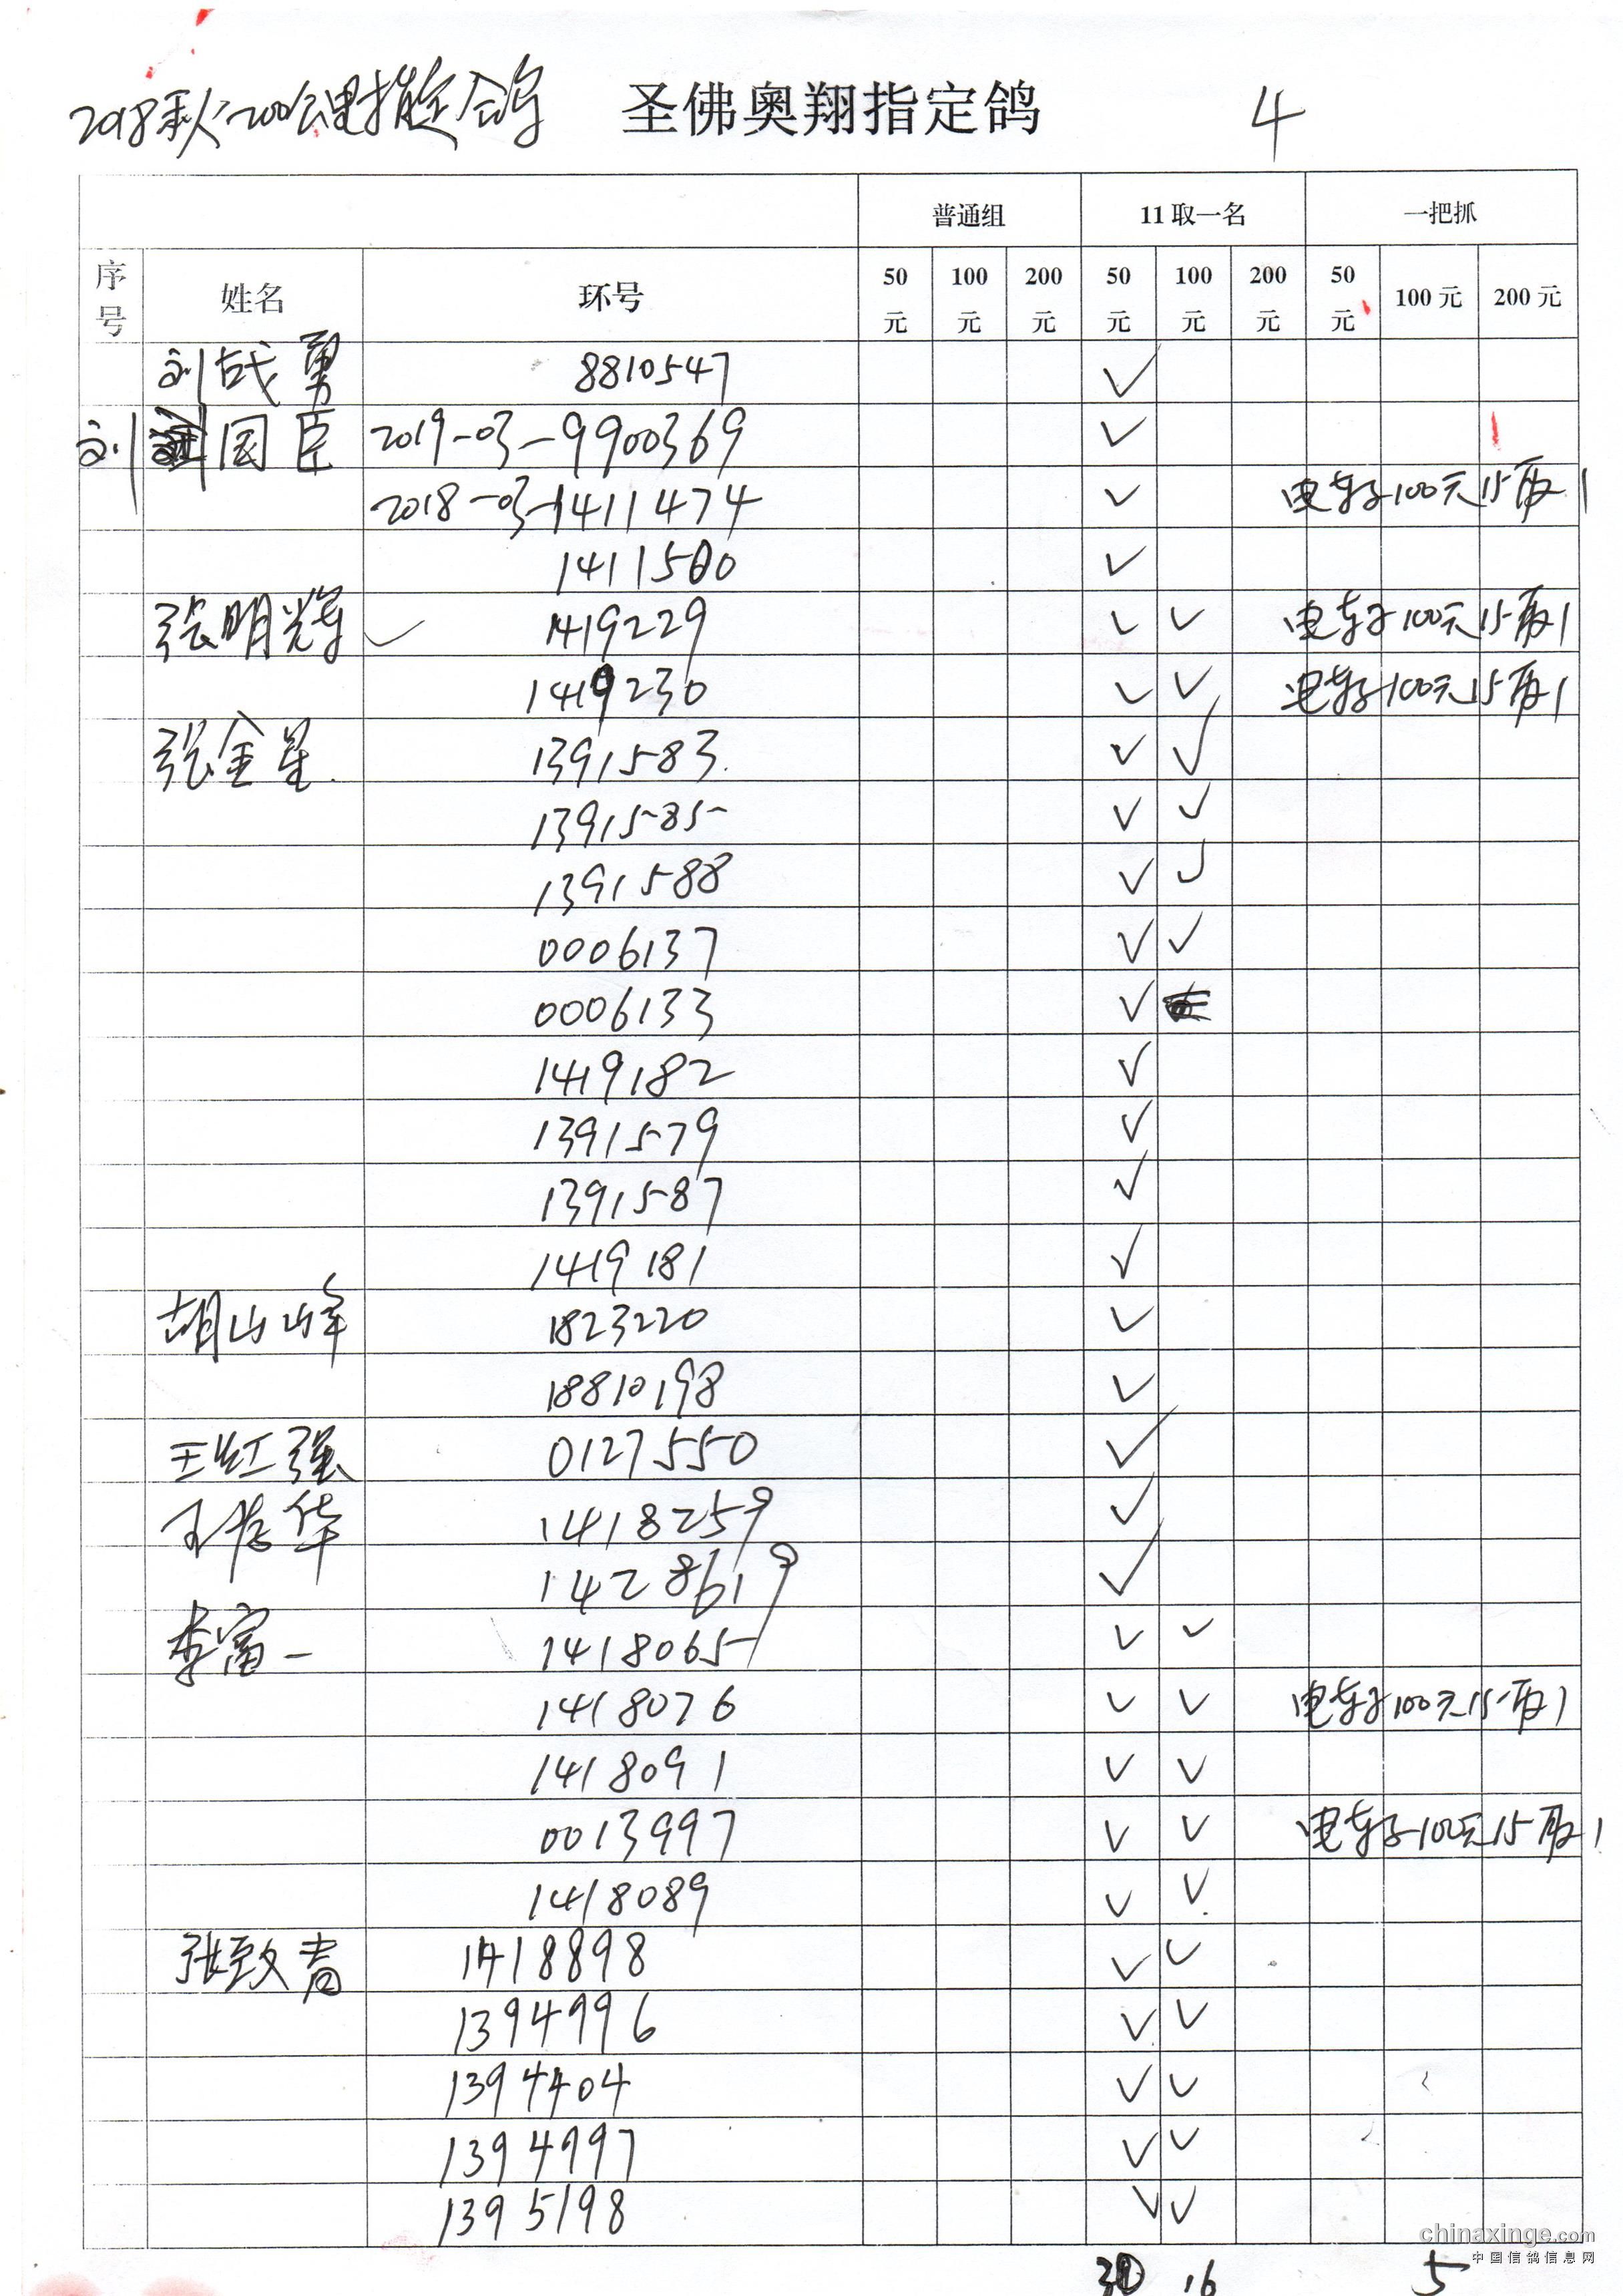 2018秋200公里指定鸽 圣佛奥翔指定鸽 4
普通组 11取一名 一把抓
序号 姓名 环号 50元 100元 200元 50元 100元 200元 50元 100元 200元
刘战勇 8810547 ✓
刘国臣 2019-03-9900369 ✓
2018-03-1411474 ✓ 电车子100元15取1
1411500 ✓
张明辉 ✓ 1419229 ✓ ✓ 电车子100元15取1
1419230 ✓ ✓ 电车子100元15取1
张金星 1391583 ✓ ✓
1391585 ✓ ✓
1391588 ✓ ✓
0006137 ✓ ✓
0006133 ✓
1419182 ✓
1391579 ✓
1391587 ✓
1419181 ✓
胡山峰 1823220 ✓
18810198 ✓
王红强 0127550 ✓
王 华 1418259 ✓
1428619 ✓
李富一 1418065 ✓ ✓
1418076 ✓ ✓ 电车子100元15取1
1418091 ✓ ✓
0013997 ✓ ✓ 电车子100元15取1
1418089 ✓ ✓
张致青 1418898 ✓ ✓
1394996 ✓ ✓
1394404 ✓ ✓
1394997 ✓ ✓
1395198 ✓ ✓
30 16 5
chinaxinge.com
中国信鸽信息网